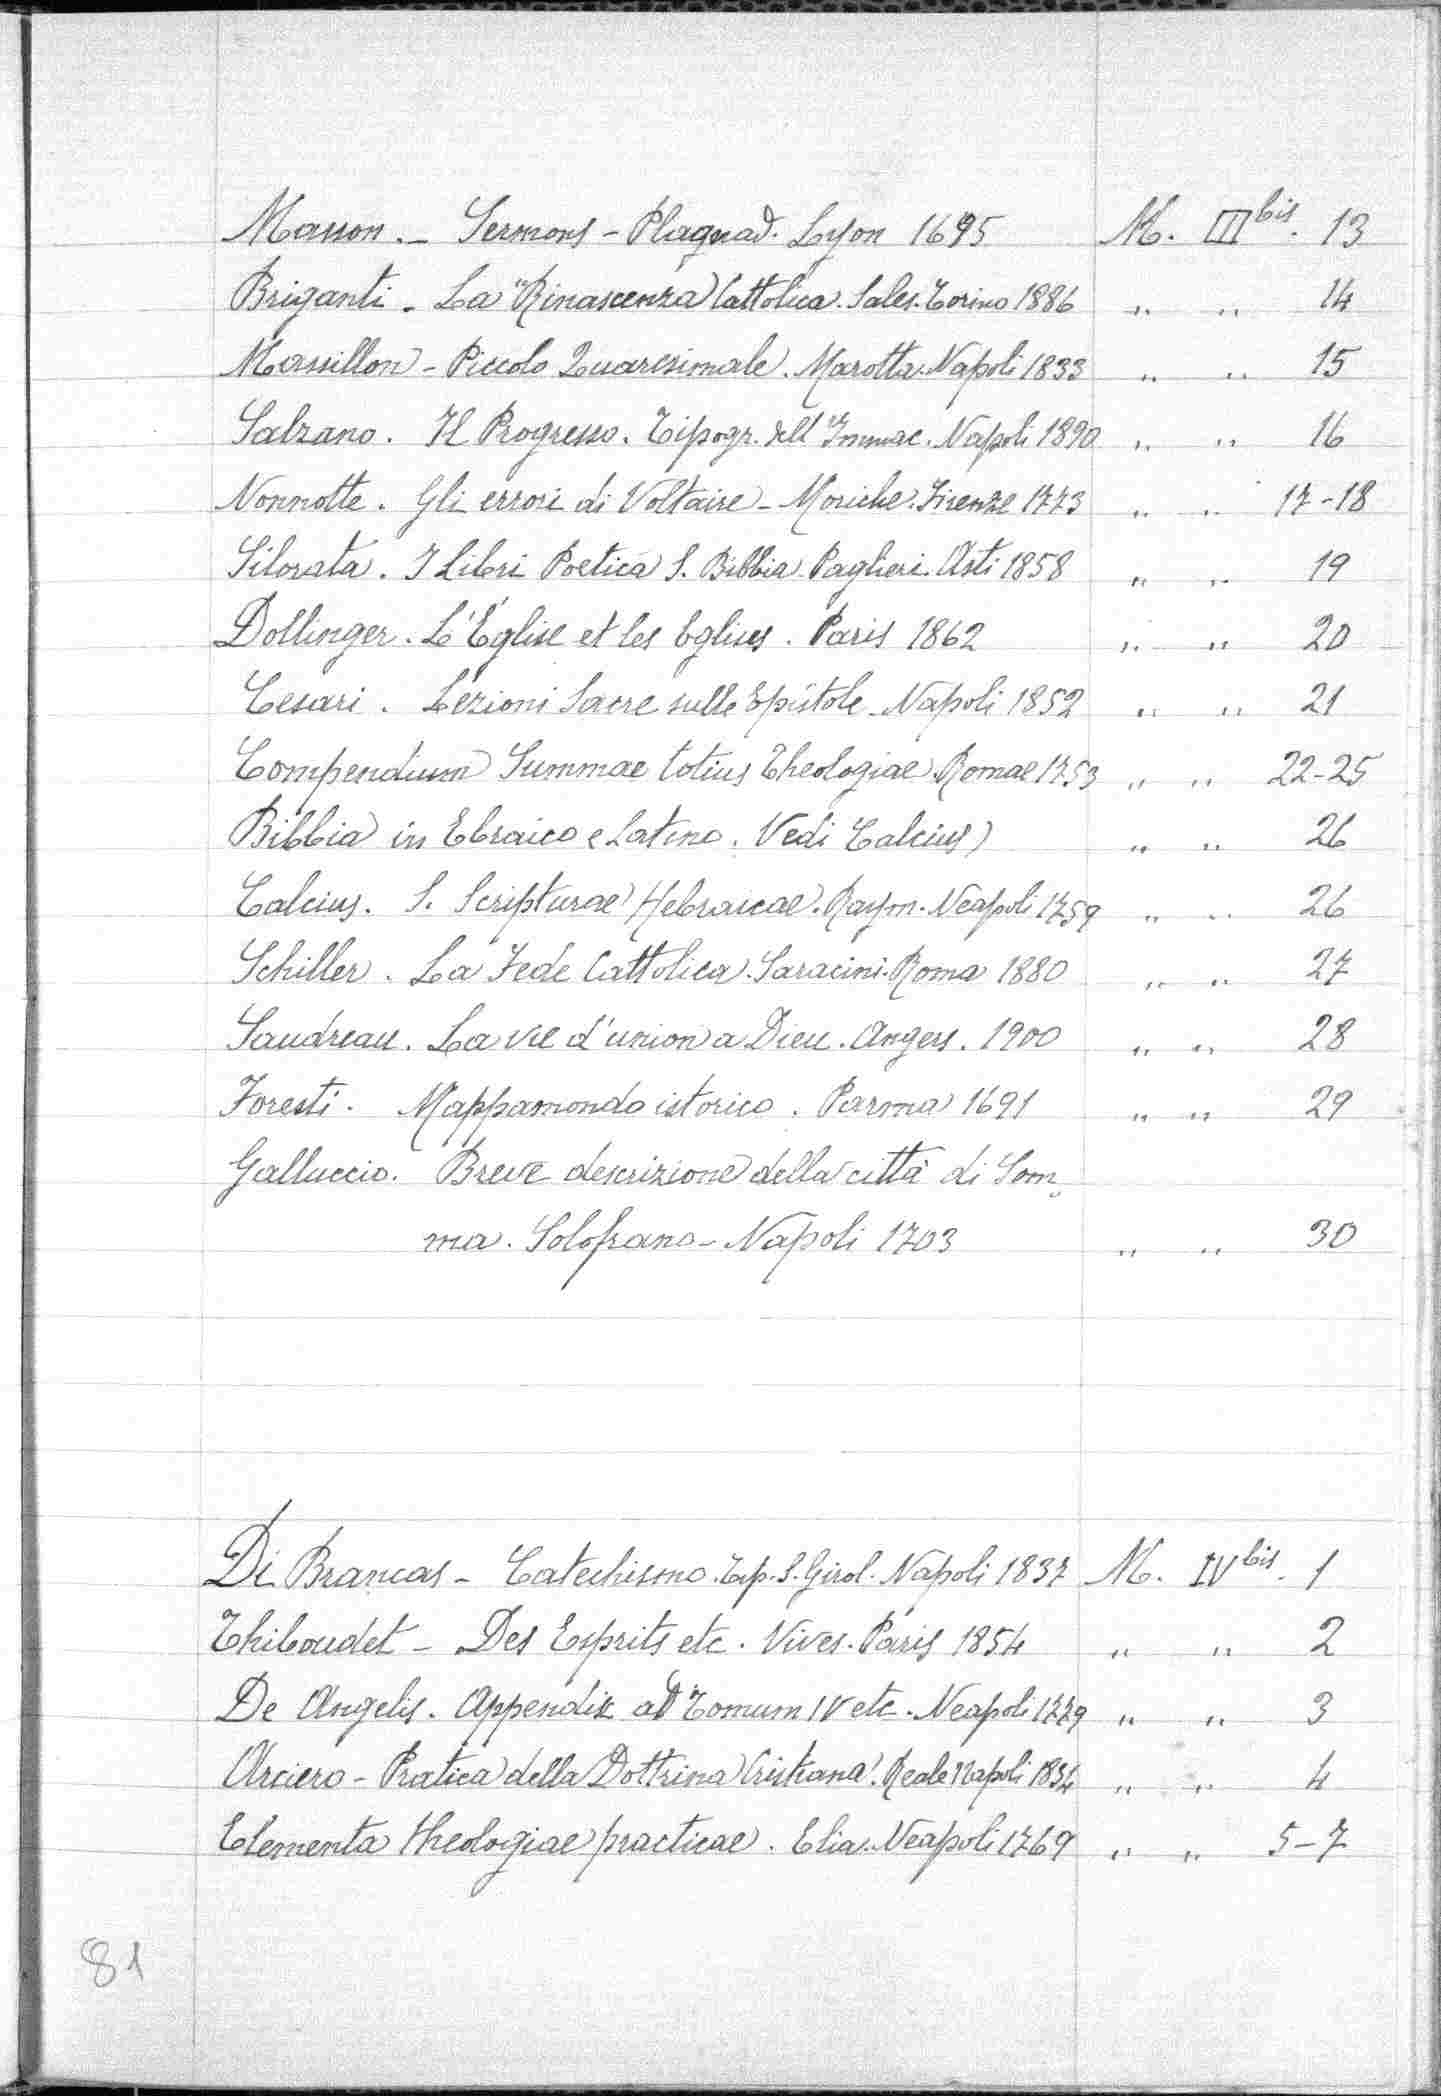 Masson. - Sermons - Plagnad. Lyon 1695 M. III bis. 13
Briganti - La Rinascenza Cattolica. Sales. Torino 1886 " " 14
Massillon - Piccolo Quaresimale. Marotta. Napoli 1833 " " 15
Salzano. Il Progresso. Tipogr. dell' Immac. Napoli 1890 " " 16
Nonnotte. Gli errori di Voltaire - Moriche. Firenze 1773 " " 17-18
Silorata. I Libri Poetica S. Bibbia. Paglieri. Asti 1858 " " 19
Dollinger. L'Église et les Eglises. Paris 1862 " " 20
Cesari. Lezioni Sacre sulle Epistole. Napoli 1852 " " 21
Compendium Summae totius Theologiae. Romae 1753 " " 22-25
Bibbia in Ebraico e Latino. Vedi Calcius) " " 26
Calcius. S. Scripturae Hebraicae. Raym. Neapoli 1759 " " 26
Schiller. La Fede Cattolica. Saracini. Roma 1880 " " 27
Saudreau. La vie d'union a Dieu. Angers. 1900 " " 28
Foresti. Mappamondo istorico. Parma 1691 " " 29
Galluccio. Breve descrizione della città di Som,
ma. Solofrano - Napoli 1703 " " 30
Di Brancas - Catechismo. Tip. S. Girol. Napoli 1837 M. IV bis. 1
Thiboudet - Des Esprits etc. Vives. Paris 1854 " " 2
De Angelis. Appendix ad Tomum IV etc. Neapoli 1779 " " 3
Arciero - Pratica della Dottrina Cristiana. Reale Napoli 1834 " " 4
Elementa theologiae practicae. Elia. Neapoli 1769 " " 5-7
81